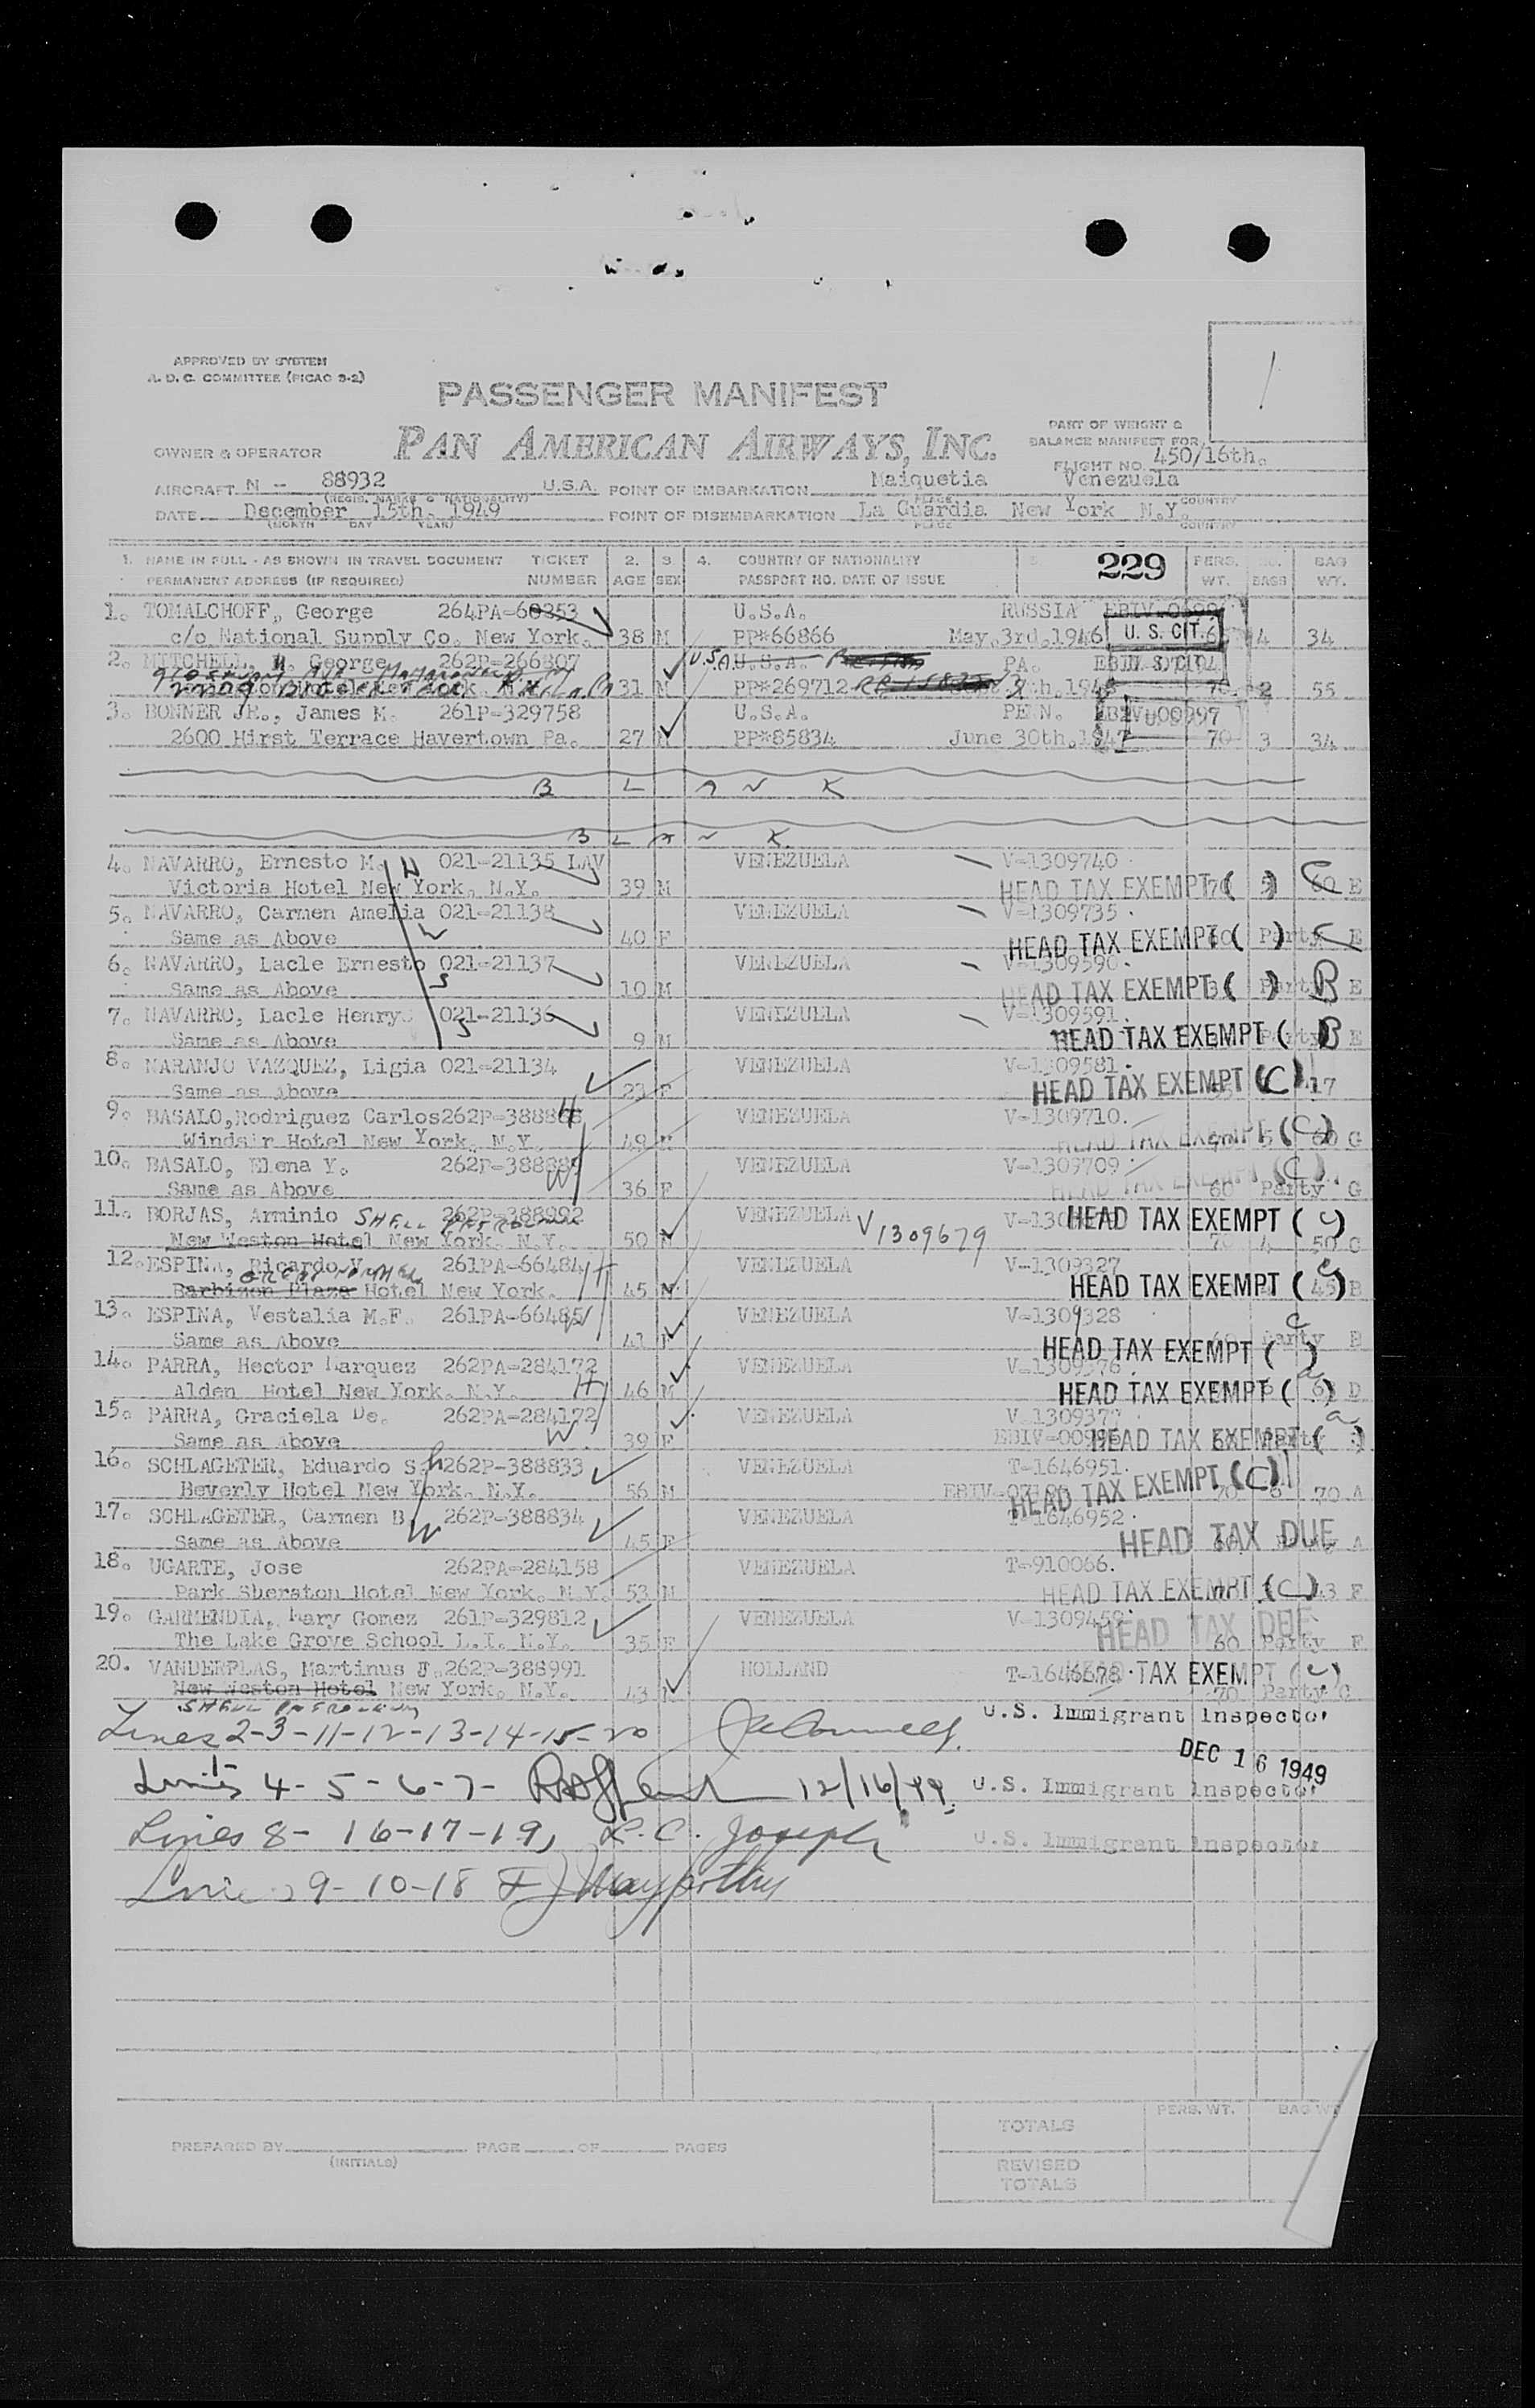 APPROVED BY SYSTEM
A. D. C. COMMITTEE (PICAO 9-2)
1
PASSENGER MANIFEST
PAN AMERICAN AIRWAYS, INC.
PART OF WEIGHT &
BALANCE MANIFEST FOR
FLIGHT NO. 450/16th.
OWNER & OPERATOR
AIRCRAFT N -- 88932 U.S.A. POINT OF EMBARKATION Maiquetia Venezuela
(REGIS. MARKS & NATIONALITY) PLACE COUNTRY
DATE December 15th. 1949 POINT OF DISEMBARKATION La Guardia New York N.Y.
(MONTH DAY YEAR) PLACE COUNTRY
1. NAME IN FULL - AS SHOWN IN TRAVEL DOCUMENT TICKET 2. 3 4. COUNTRY OF NATIONALITY 229 PERS. NO. BAG
PERMANENT ADDRESS (IF REQUIRED) NUMBER AGE SEX PASSPORT NO. DATE OF ISSUE WT. BAGS WT.
1. TOMALCHOFF, George 264PA-60353 U.S.A. RUSSIA
c/o National Supply Co. New York. 38 M PP*66866 May.3rd.1946 U. S. CIT. 4 34
2. MITCHELL, George 262P-266807 U.S.A. U.S.A. PA.
31 M PP*269712 70 2 55
3. BONNER JR., James M. 261P-329758 U.S.A. PENN.
2600 Hirst Terrace Havertown Pa. 27 M PP*85834 June 30th.1947 70 3 34
B L A N K
B L A N K
4. NAVARRO, Ernesto M. H 021-21135 LAV VENEZUELA V-1309740
Victoria Hotel New York. N.Y. 39 M HEAD TAX EXEMPT ( ) C 60 E
5. NAVARRO, Carmen Amelia 021-21138 VENEZUELA V-1309735
Same as Above W 40 F HEAD TAX EXEMPT ( ) Party C E
6. NAVARRO, Lacle Ernesto 021-21137 VENEZUELA V-1309590
Same as Above S 10 M HEAD TAX EXEMPT ( ) Party B E
7. NAVARRO, Lacle Henry 021-21136 VENEZUELA V-1309591
Same as Above S 9 M HEAD TAX EXEMPT ( B E
8. NARANJO VAZQUEZ, Ligia 021-21134 VENEZUELA V-1309581
Same as Above 23 F HEAD TAX EXEMPT (C) 17
9. BASALO, Rodriguez Carlos 262P-388868 H VENEZUELA V-1309710.
Windsir Hotel New York. N.Y. 49 M HEAD TAX EXEMPT (C) 60 G
10. BASALO, Elena Y. 262P-388889 W VENEZUELA V-1309709
Same as Above 36 F HEAD TAX EXEMPT (C) 60 Party G
11. BORJAS, Arminio SHELL PETROLEUM 262P-388992 VENEZUELA V1309679 HEAD TAX EXEMPT (C)
New Weston Hotel New York. N.Y. 50 M 70 4 50 C
12. ESPINA, Ricardo V. 261PA-66484 H VENEZUELA V-1309327
Barbizon Plaza Hotel New York. 45 M HEAD TAX EXEMPT (C) 45 B
13. ESPINA, Vestalia M.F. 261PA-66485 W VENEZUELA V-1309328
Same as Above 41 F HEAD TAX EXEMPT (C) Party B
14. PARRA, Hector Marquez 262PA-284172 VENEZUELA V-1309376
Alden Hotel New York. N.Y. H 46 M HEAD TAX EXEMPT ( ) D
15. PARRA, Graciela De. 262PA-284172 VENEZUELA V-1309377
Same as Above W 39 F HEAD TAX EXEMPT ( )
16. SCHLAGETER, Eduardo S. h 262P-388833 VENEZUELA T-1646951.
Beverly Hotel New York. N.Y. 56 M HEAD TAX EXEMPT (C) 70 A
17. SCHLAGETER, Carmen B. W 262P-388834 VENEZUELA T-1646952.
Same as Above 45 F HEAD TAX DUE A
18. UGARTE, Jose 262PA-284158 VENEZUELA T-910066.
Park Sheraton Hotel New York. N.Y. 53 M HEAD TAX EXEMPT (C) 43 F
19. GARMENDIA, Mary Gomez 261P-329812 VENEZUELA V-1309459
The Lake Grove School L.I. N.Y. 35 F HEAD TAX DUE 60 Party F
20. VANDERPLAS, Martinus J. 262P-388991 HOLLAND T-1646678 TAX EXEMPT (C)
New Weston Hotel New York. N.Y. 43 M 70 Party C
SHELL PETROLEUM
Lines 2-3-11-12-13-14-15-20 U.S. Immigrant Inspector
DEC 16 1949
Lines 4-5-6-7- 12/16/49. U.S. Immigrant Inspector
Lines 8-16-17-19, L.C. Joseph U.S. Immigrant Inspector
Lines 9-10-18
TOTALS PERS. WT. BAG WT
PREPARED BY PAGE OF PAGES
(INITIALS)
REVISED
TOTALS